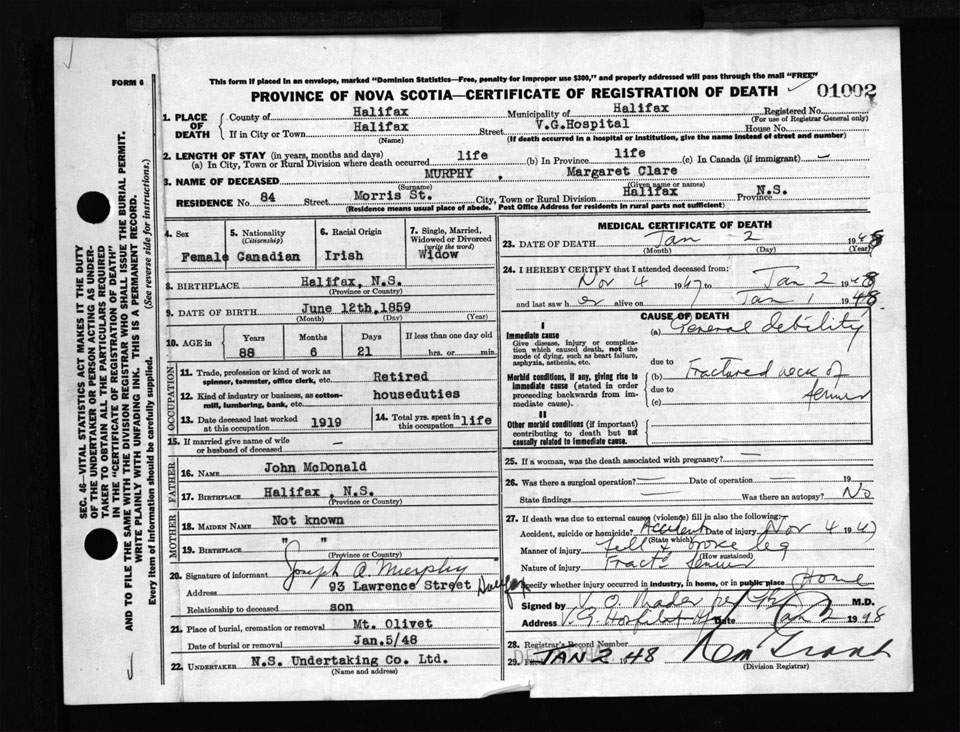 FORM 6
This form if placed in an envelope, marked "Dominion Statistics—Free, penalty for improper use $300," and properly addressed will pass through the mail "FREE"
PROVINCE OF NOVA SCOTIA—CERTIFICATE OF REGISTRATION OF DEATH
01092
SEC. 46—VITAL STATISTICS ACT MAKES IT THE DUTY
OF THE UNDERTAKER OR PERSON ACTING AS UNDER-
TAKER TO OBTAIN ALL THE PARTICULARS REQUIRED
IN THE "CERTIFICATE OF REGISTRATION OF DEATH"
AND TO FILE THE SAME WITH THE DIVISION REGISTRAR WHO SHALL ISSUE THE BURIAL PERMIT.
WRITE PLAINLY WITH UNFADING INK. THIS IS A PERMANENT RECORD.
Every item of information should be carefully supplied. (See reverse side for instructions.)
1. PLACE OF DEATH
County of Halifax Municipality of Halifax Registered No.
(For use of Registrar General only)
If in City or Town Halifax Street V.G.Hospital House No.
(Name) (If death occurred in a hospital or institution, give the name instead of street and number)
2. LENGTH OF STAY (in years, months and days)
(a) In City, Town or Rural Division where death occurred life (b) In Province life (c) In Canada (if immigrant) —
3. NAME OF DECEASED MURPHY , Margaret Clare
(Surname) (Given name or names)
RESIDENCE No. 84 Street Morris St. City, Town or Rural Division Halifax Province N.S.
(Residence means usual place of abode. Post Office Address for residents in rural parts not sufficient)
4. Sex Female
5. Nationality (Citizenship) Canadian
6. Racial Origin Irish
7. Single, Married, Widowed or Divorced (write the word) Widow
8. BIRTHPLACE Halifax, N.S.
(Province or Country)
9. DATE OF BIRTH June 12th, 1859
(Month) (Day) (Year)
10. AGE in Years Months Days If less than one day old
88 6 21 hrs. or min.
OCCUPATION
11. Trade, profession or kind of work as spinner, teamster, office clerk, etc. Retired
12. Kind of industry or business, as cotton-mill, lumbering, bank, etc. houseduties
13. Date deceased last worked at this occupation 1919
14. Total yrs. spent in this occupation life
15. If married give name of wife or husband of deceased —
FATHER
16. NAME John McDonald
17. BIRTHPLACE Halifax, N.S.
(Province or Country)
MOTHER
18. MAIDEN NAME Not known
19. BIRTHPLACE " "
(Province or Country)
20. Signature of informant Joseph A. Murphy
Address 93 Lawrence Street Halifax
Relationship to deceased son
21. Place of burial, cremation or removal Mt. Olivet
Date of burial or removal Jan.5/48
22. UNDERTAKER N.S. Undertaking Co. Ltd.
(Name and address)
MEDICAL CERTIFICATE OF DEATH
23. DATE OF DEATH Jan 2 1948
(Month) (Day) (Year)
24. I HEREBY CERTIFY that I attended deceased from:
Nov 4 1947 to Jan 2 1948
and last saw her alive on Jan 1 1948.
CAUSE OF DEATH
I
Immediate cause
Give disease, injury or complication which caused death, not the mode of dying, such as heart failure, asphyxia, asthenia, etc.
(a) General debility
due to
Morbid conditions, if any, giving rise to immediate cause (stated in order proceeding backwards from immediate cause).
(b) Fractured neck of
due to femur
(c)
II
Other morbid conditions (if important) contributing to death but not causally related to immediate cause.
25. If a woman, was the death associated with pregnancy? —
26. Was there a surgical operation? — Date of operation — 19
State findings — Was there an autopsy? No
27. If death was due to external causes (violence) fill in also the following:
Accident, suicide or homicide? Accident Date of injury Nov 4 1947
(State which)
Manner of injury Fell & broke leg
(How sustained)
Nature of injury Fract. femur
Specify whether injury occurred in industry, in home, or in public place Home
Signed by V. O. Mader M.D.
Address V.G. Hospital Date Jan 2 1948
28. Registrar's Record Number
29. Filed JAN 2 1948
(Division Registrar)